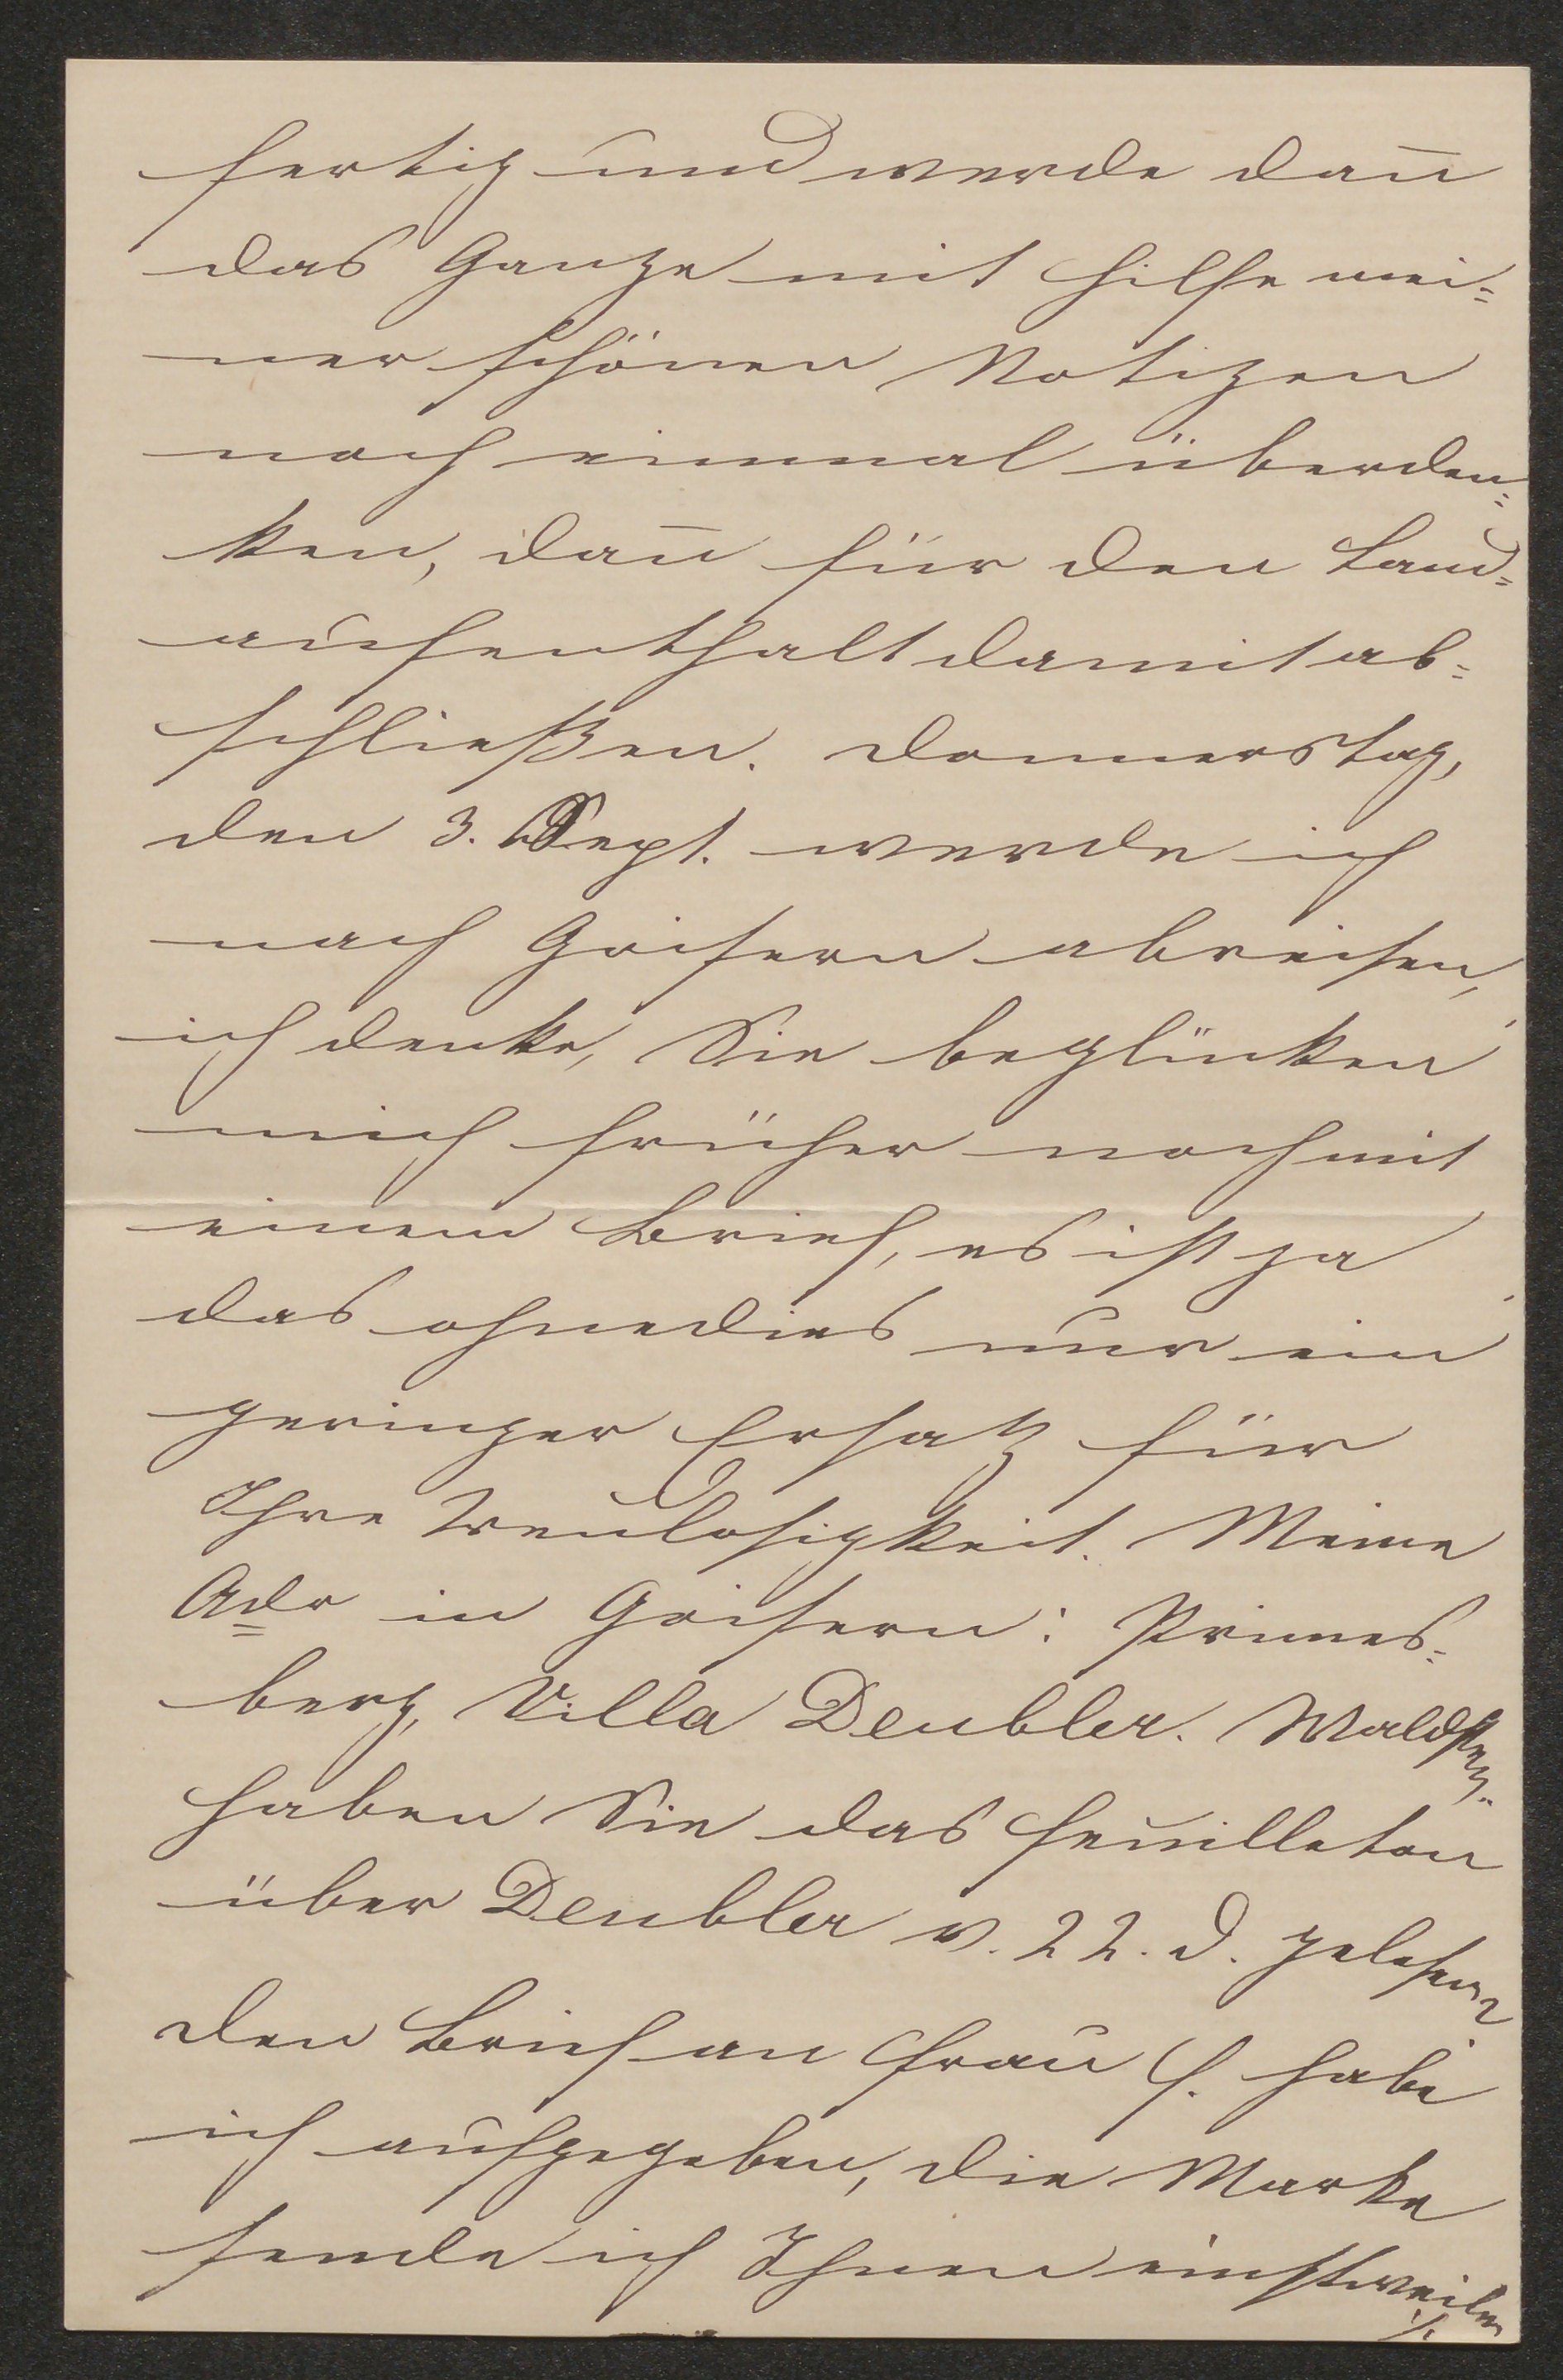 fertig und werde dan̄
das Ganze mit Hilfe mei=
ner schönen Notizen
noch einmal überden=
ken, dan̄ für den Land=
aufenthalt damit ab=
schließen. Donnerstag,
den 3. Sept. werde ich
nach Goisern abreisen,
ich denke, Sie beglücken
mich früher noch mit
einem Brief, es ist ja
das ohnedies nur ein
geringer Ersatz für
Ihre Treulosigkeit. Meine
Adr in Goisern: Primes=
berg, Villa Deubler.
haben Sie das Feuilleton
über Deubler v. 22. d. gelesen?
den Brief an Frau F. habe
ich aufgegeben, die Marke
sende ich Ihnen einstweilen
./.